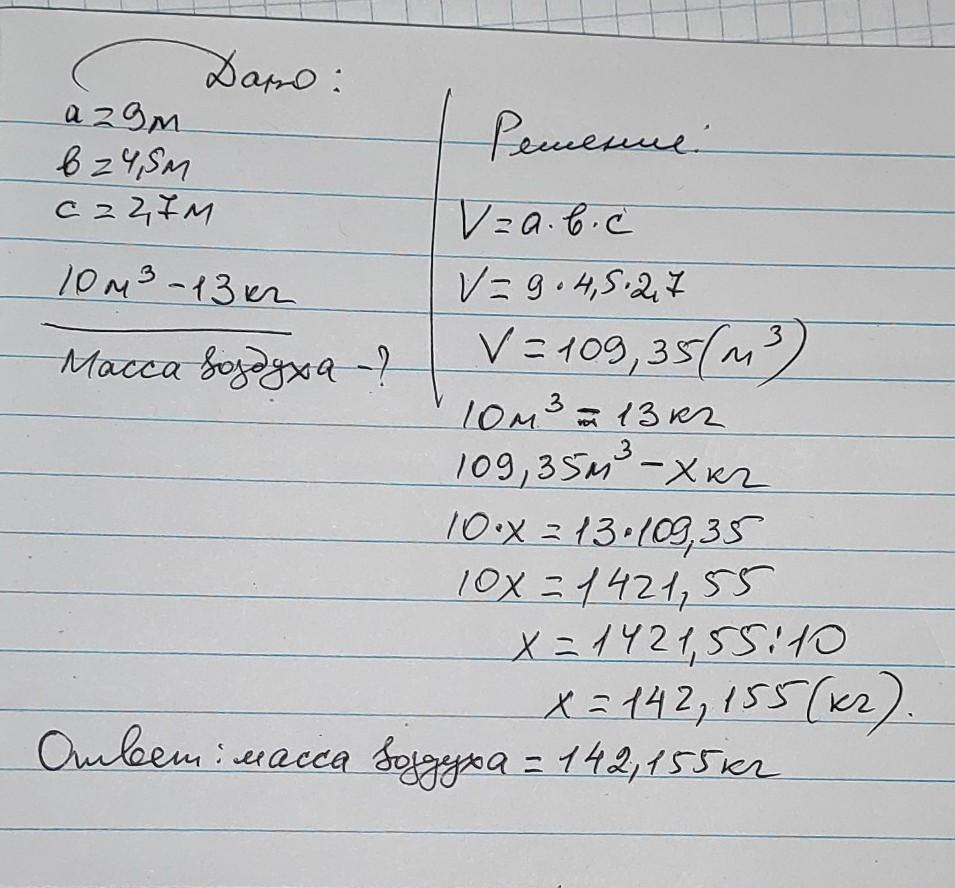 Дано:
а = 9м
в = 4,5м
с = 2,7м
10м³ - 13кг
Масса воздуха - ?
Решение:
V = а · в · с
V = 9 · 4,5 · 2,7
V = 109,35(м³)
10м³ = 13кг
109,35м³ - х кг
10 · х = 13 · 109,35
10х = 1421,55
х = 1421,55 : 10
х = 142,155(кг).
Ответ: масса воздуха = 142,155кг